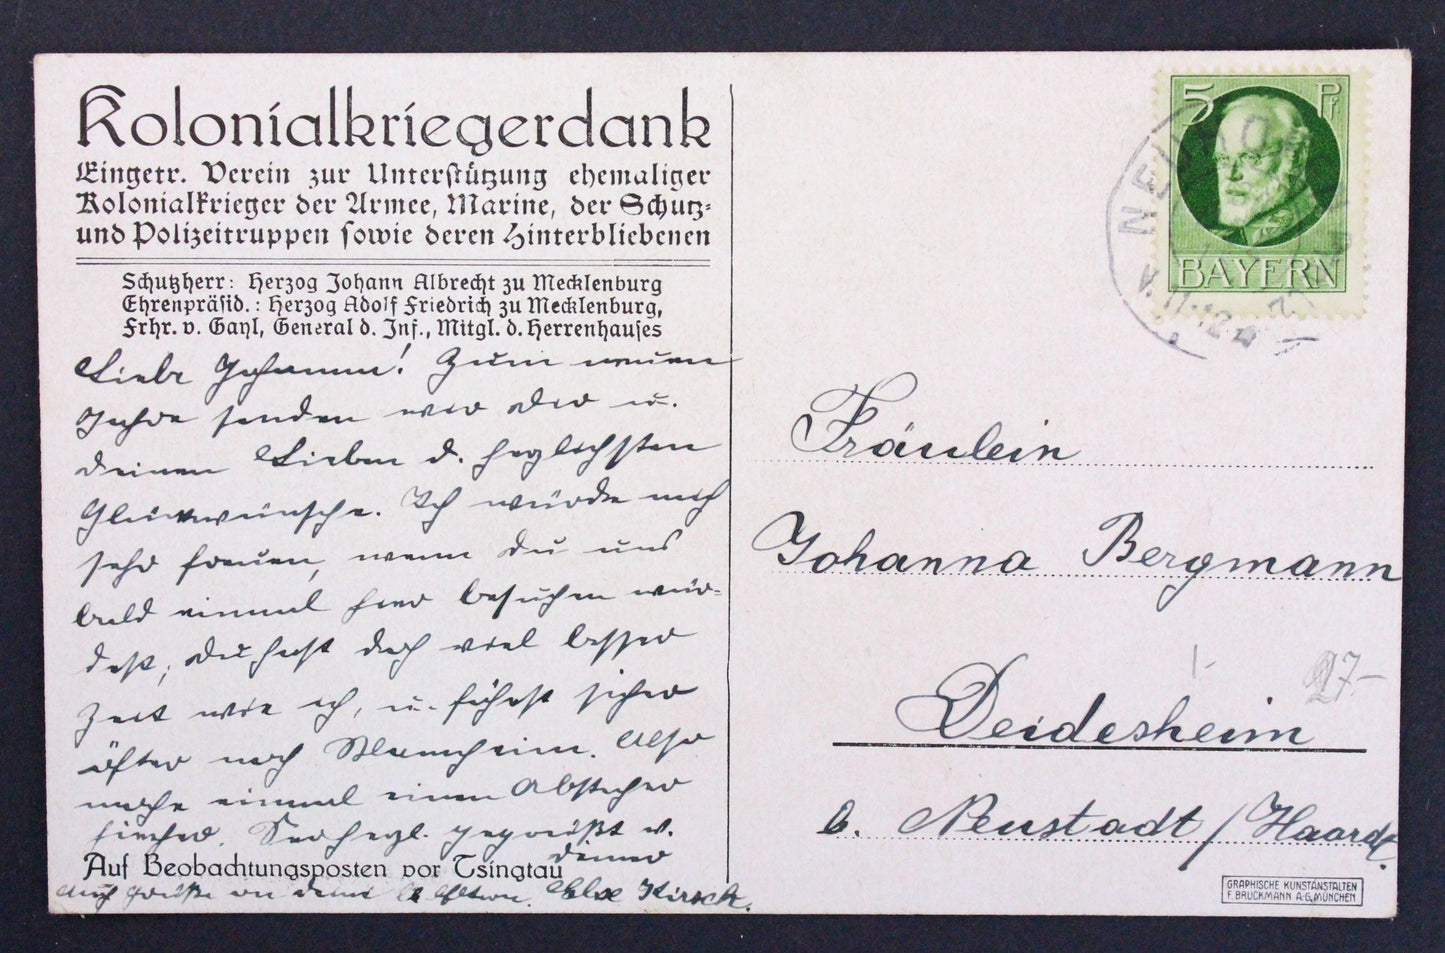 Kolonialkriegerdank
Eingetr. Verein zur Unterstützung ehemaliger
Kolonialkrieger der Armee, Marine, der Schutz-
und Polizeitruppen sowie deren Hinterbliebenen
Schutzherr: Herzog Johann Albrecht zu Mecklenburg
Ehrenpräsid.: Herzog Adolf Friedrich zu Mecklenburg,
Frhr. v. Gayl, General d. Inf., Mitgl. d. Herrenhauses
Liebe Johanna! Zum neuen
Jahre senden wir dir u.
deinen Lieben d. herzlichsten
Glückwünsche. Ich würde mich
sehr freuen, wenn du uns
bald einmal hier besuchen wür-
dest, du hast doch viel besser
Zeit wie ich, u. fährst sicher
öfter nach Mannheim. Also
mache einmal einen Abstecher
hierher. Sei herzl. gegrüßt v.
deiner
Auf Beobachtungsposten vor Tsingtau
Auch Grüße an deine Eltern. Else Kirsch.
5 Pf
BAYERN
V. 11-12
Fräulein
Johanna Bergmann
Deidesheim
b. Neustadt / Haardt.
1-
27-
GRAPHISCHE KUNSTANSTALTEN
F. BRUCKMANN A-G, MÜNCHEN